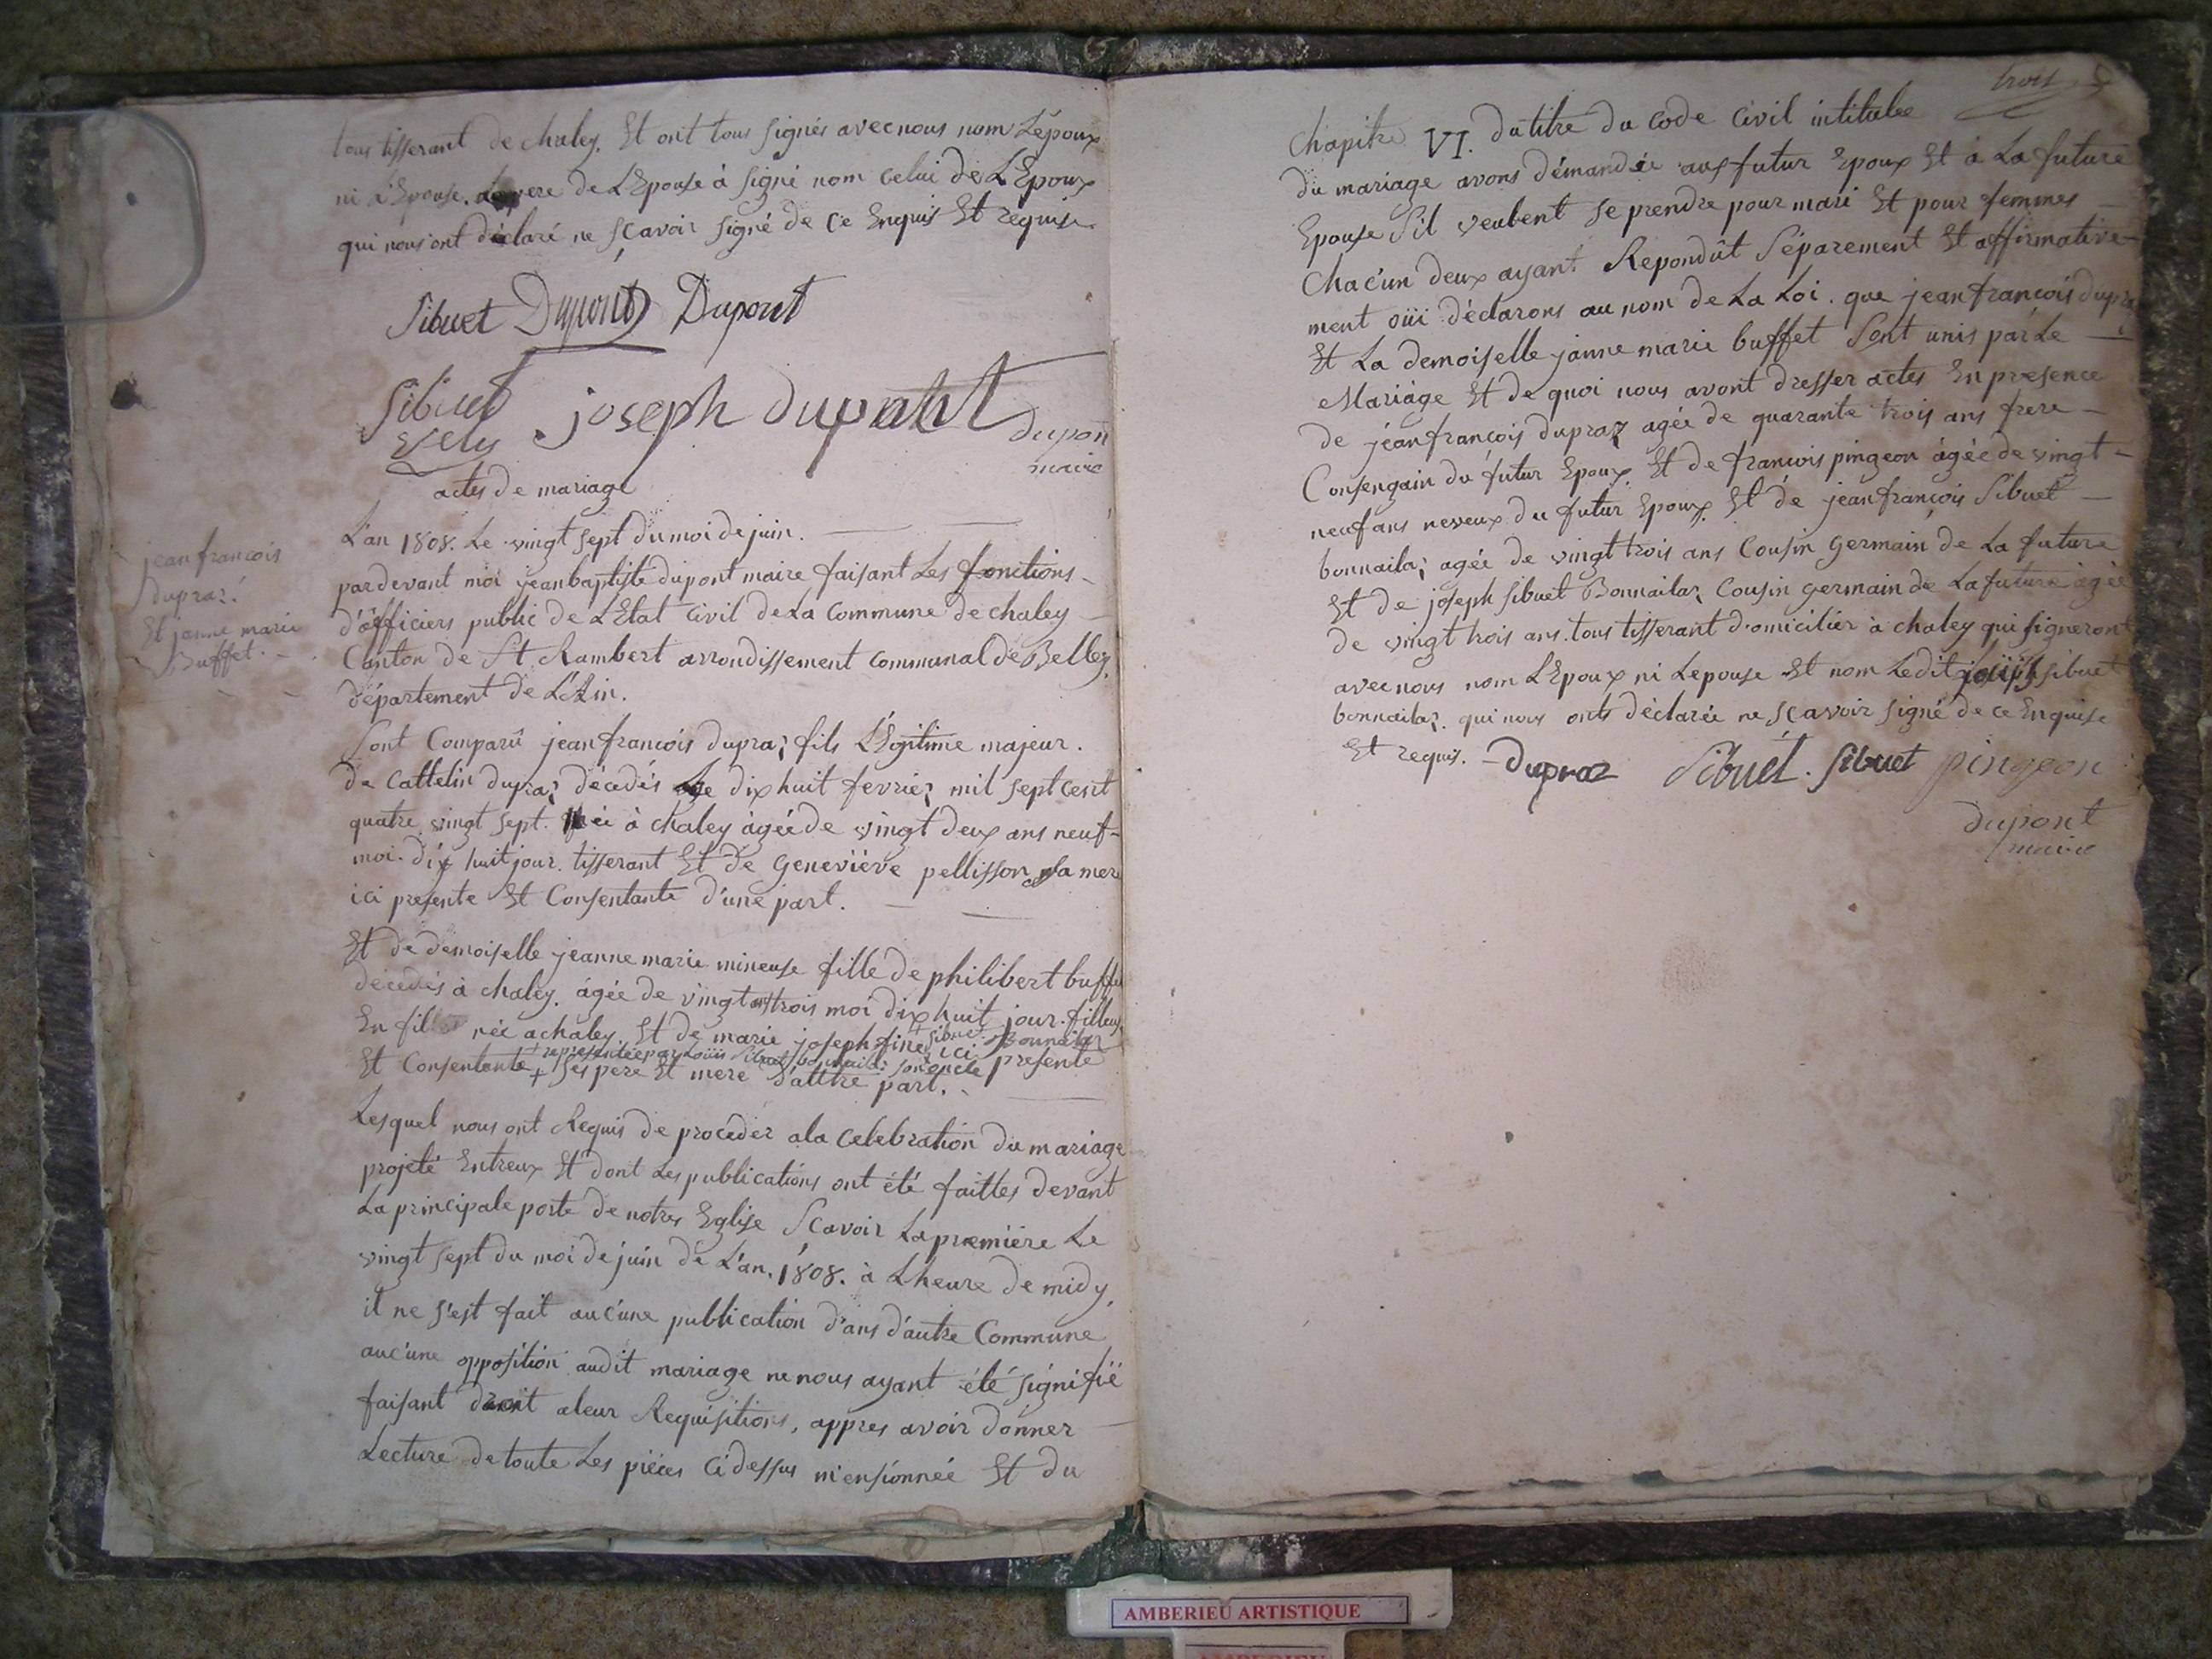 tous tisserant de chaley. Et ont tous signés avec nous nom L'époux
ni L'Epouse. Le pere de L'Epouse à signé nom celui de L'Epoux
qui nous ont déclaré ne sçavoir signé de ce Enquis Et requise
Sibuet Dupont Dupont
Sibuet joseph dupont
dupon
maire
actes de mariage
jean francois
dupraz
Et janne marie
Buffet.
L'an 1808. Le vingt sept du moi de juin.
pardevant moi jean baptiste dupont maire faisant Les fonctions
d'officiers public de L'Etat civil de La Commune de chaley
Canton de St. Rambert arrondissement communal de Belley,
département de L'Ain.
Sont Comparû jean francois dupraz fils L'Egitime majeur.
de Cattelin dupraz décedés Le dix huit fevriez mil sept cent
quatre vingt sept. née à chaley àgée de vingt deux ans neuf
moi. dix huit jour. tisserant Et de Geneviève pellisson sa mere
ici presente Et Consentante d'une part.
Et de demoiselle jeanne marie mineuse fille de philibert buffet
décedés à chaley. âgée de vingt ans trois moi dix huit jour. filleuse
En fil née a chaley. Et de marie joseph fine sibuet Bonnailaz ici presente
+ representée par Loüis Sibuet bonnailaz son oncle
Et Consentente + Ses pere Et mere d'auttre part.
Lesquel nous ont Requis de proceder a la Celebration du mariage
projeté Entreux Et dont Les publications ont été faittes devant
La principale porte de notres Eglise Scavoir La première Le
vingt sept du moi de juin de L'an. 1808. à L'heure de midy,
il ne s'est fait aucune publication dans d'autre Commune
aucune opposition audit mariage ne nous ayant été signifié
faisant droit a leur Requisitions, appres avoir donner
Lecture de toute Les pièces Ci dessus mensionnée Et du
trois
Chapitre VI. du titre du Code Civil intitulée
du mariage avons démandée aux futur Epoux Et à La future
Epouse Sil veulent se prendre pour mari Et pour femmes
Chacun deux ayant Repondût Séparement Et affirmative-
ment oüi déclarons au nom de La Loi. que jean françois dupraz
Et La demoiselle janne marie buffet Sont unis par Le
Mariage Et de quoi nous avont dresser actes En presence
de jean françois dupraz agée de quarante trois ans frere
Consengain du futur Epoux. Et de francois pingeon àgée de vingt
neuf ans neveux du futur Epoux. Et de jean françois Sibuet
bonnailaz agée de vingt trois ans Cousin germain de La future
Et de joseph Sibuet Bonnailaz Cousin germain de La future àgée
de vingt trois ans. tous tisserant domicilier à chaley qui signeront
avec nous nom L'Epoux ni Lepouse Et nom Ledit sibuet
bonnailaz. qui nous onts déclarée ne sçavoir signé de ce Enquise
Et requis. Dupraz Sibuet. Sibuet pingeon
dupont
maire
AMBERIEU ARTISTIQUE
AMBERIEU